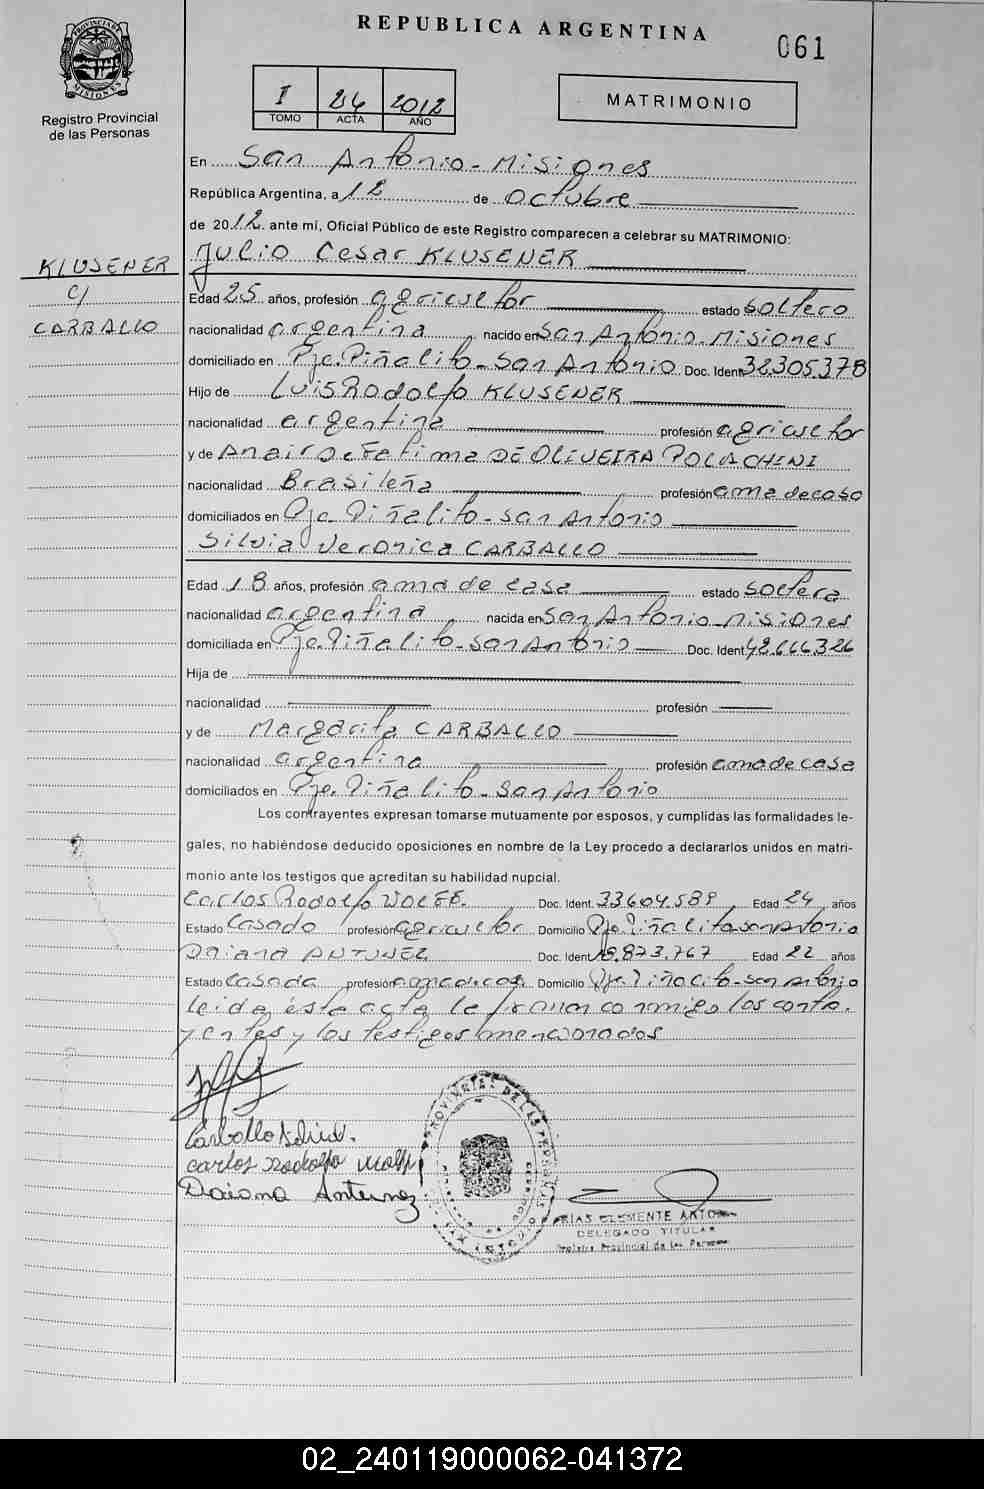 REPUBLICA ARGENTINA
061
PROVINCIA DE MISIONES
Registro Provincial
de las Personas
I 26 2012
TOMO ACTA AÑO
MATRIMONIO
En San Antonio - Misiones
República Argentina, a 12 de Octubre
de 2012. ante mí, Oficial Público de este Registro comparecen a celebrar su MATRIMONIO:
Julio Cesar KLUSENER
KLUSENER
c/
CARBALLO
Edad 25 años, profesión agricultor estado soltero
nacionalidad argentina nacido en San Antonio - Misiones
domiciliado en Pje. Piñalito - San Antonio Doc. Ident. 32.305.378
Hijo de Luis Rodolfo KLUSENER
nacionalidad argentina profesión agricultor
y de DE OLIVEIRA POLACHINI
nacionalidad Brasileña profesión ama de casa
domiciliados en Pje. Piñalito - San Antonio
Silvia Veronica CARBALLO
Edad 18 años, profesión ama de casa estado soltera
nacionalidad argentina nacida en San Antonio - Misiones
domiciliada en Pje. Piñalito - San Antonio Doc. Ident.
Hija de
nacionalidad profesión
y de Margarita CARBALLO
nacionalidad argentina profesión ama de casa
domiciliados en Pje. Piñalito - San Antonio
Los contrayentes expresan tomarse mutuamente por esposos, y cumplidas las formalidades le-
gales, no habiéndose deducido oposiciones en nombre de la Ley procedo a declararlos unidos en matri-
monio ante los testigos que acreditan su habilidad nupcial.
Carlos Rodolfo WOLFF. Doc. Ident. 33.604.589 Edad 24 años
Estado Casado profesión agricultor Domicilio Pje. Piñalito San Antonio
Daiana ANTUNEZ Doc. Ident. Edad 22 años
Estado Casada profesión ama de casa Domicilio Pje. Piñalito - San Antonio
Leida ésta acta la firman conmigo los contra-
yentes y los testigos mencionados
Carballo Silvia.
Carlos Rodolfo Wolff
Daiana Antunez
FRIAS CLEMENTE ANTONIO
DELEGADO TITULAR
Registro Provincial de las Personas
02_240119000062-041372